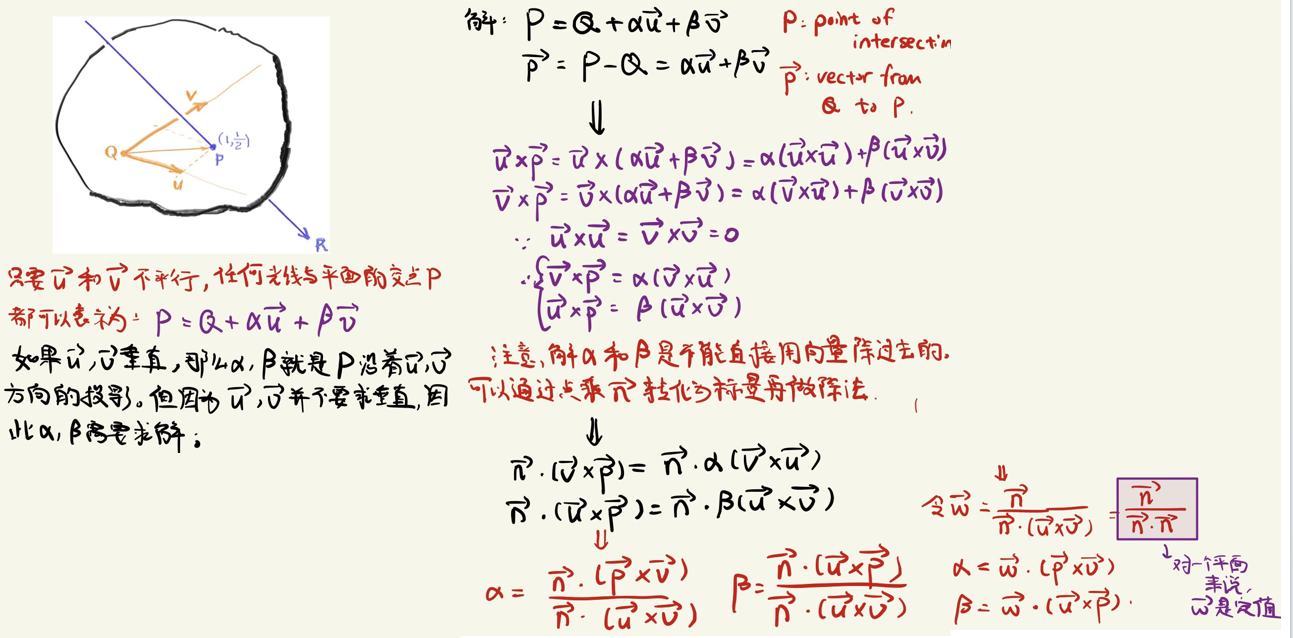 v
Q
(1,½)
P
u
R
只要 u⃗ 和 v⃗ 不平行,任何光线与平面的交点P
都可以表示为: P = Q + αu⃗ + βv⃗
如果u⃗,v⃗垂直,那么α,β就是P沿着u⃗,v⃗
方向的投影。但因为 u⃗,v⃗并不要求垂直,因
此α,β需要求解;
解: P = Q + αu⃗ + βv⃗
p⃗ = P - Q = αu⃗ + βv⃗
P: point of
intersection
p⃗: vector from
Q to P.
⇓
u⃗×p⃗ = u⃗×(αu⃗+βv⃗) = α(u⃗×u⃗)+β(u⃗×v⃗)
v⃗×p⃗ = v⃗×(αu⃗+βv⃗) = α(v⃗×u⃗)+β(v⃗×v⃗)
∵ u⃗×u⃗ = v⃗×v⃗ = 0
∴ { v⃗×p⃗ = α(v⃗×u⃗)
u⃗×p⃗ = β(u⃗×v⃗)
注意,解α和β是不能直接用向量除过去的.
可以通过点乘 n⃗ 转化为标量再做除法.
⇓
n⃗·(v⃗×p⃗) = n⃗·α(v⃗×u⃗)
n⃗·(u⃗×p⃗) = n⃗·β(u⃗×v⃗)
⇓
α = n⃗·(p⃗×v⃗) / n⃗·(u⃗×v⃗) β = n⃗·(u⃗×p⃗) / n⃗·(u⃗×v⃗)
⇓
令 w⃗ = n⃗ / n⃗·(u⃗×v⃗) = n⃗ / n⃗·n⃗
α = w⃗·(p⃗×v⃗)
β = w⃗·(u⃗×p⃗).
↳ 对一个平面
来说,
w⃗是定值